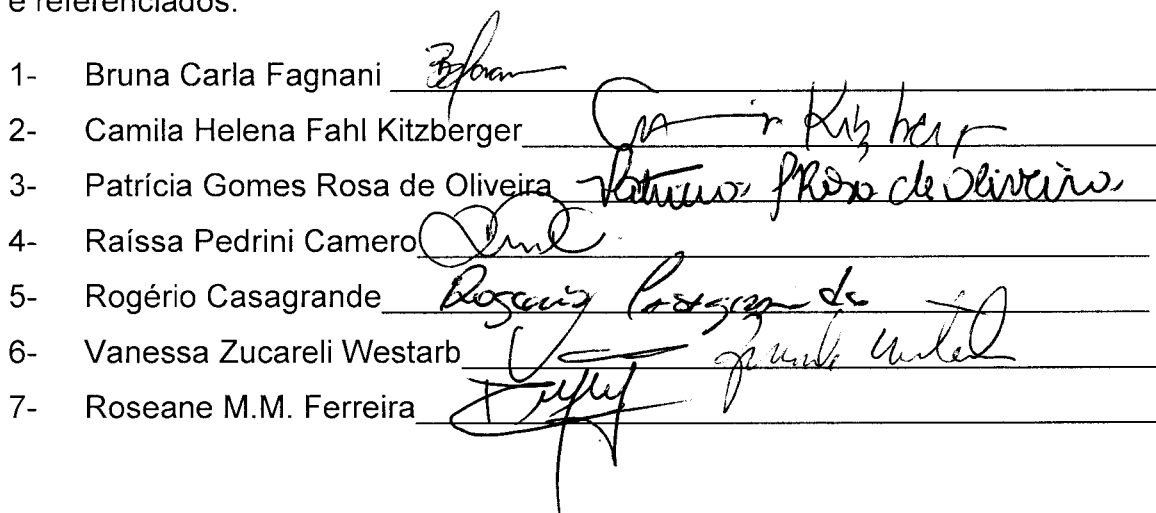 e referenciados.
1- Bruna Carla Fagnani
2- Camila Helena Fahl Kitzberger
3- Patrícia Gomes Rosa de Oliveira Rosa de Oliveira
4- Raíssa Pedrini Camero
5- Rogério Casagrande Rogério Casagrande
6- Vanessa Zucareli Westarb
7- Roseane M.M. Ferreira